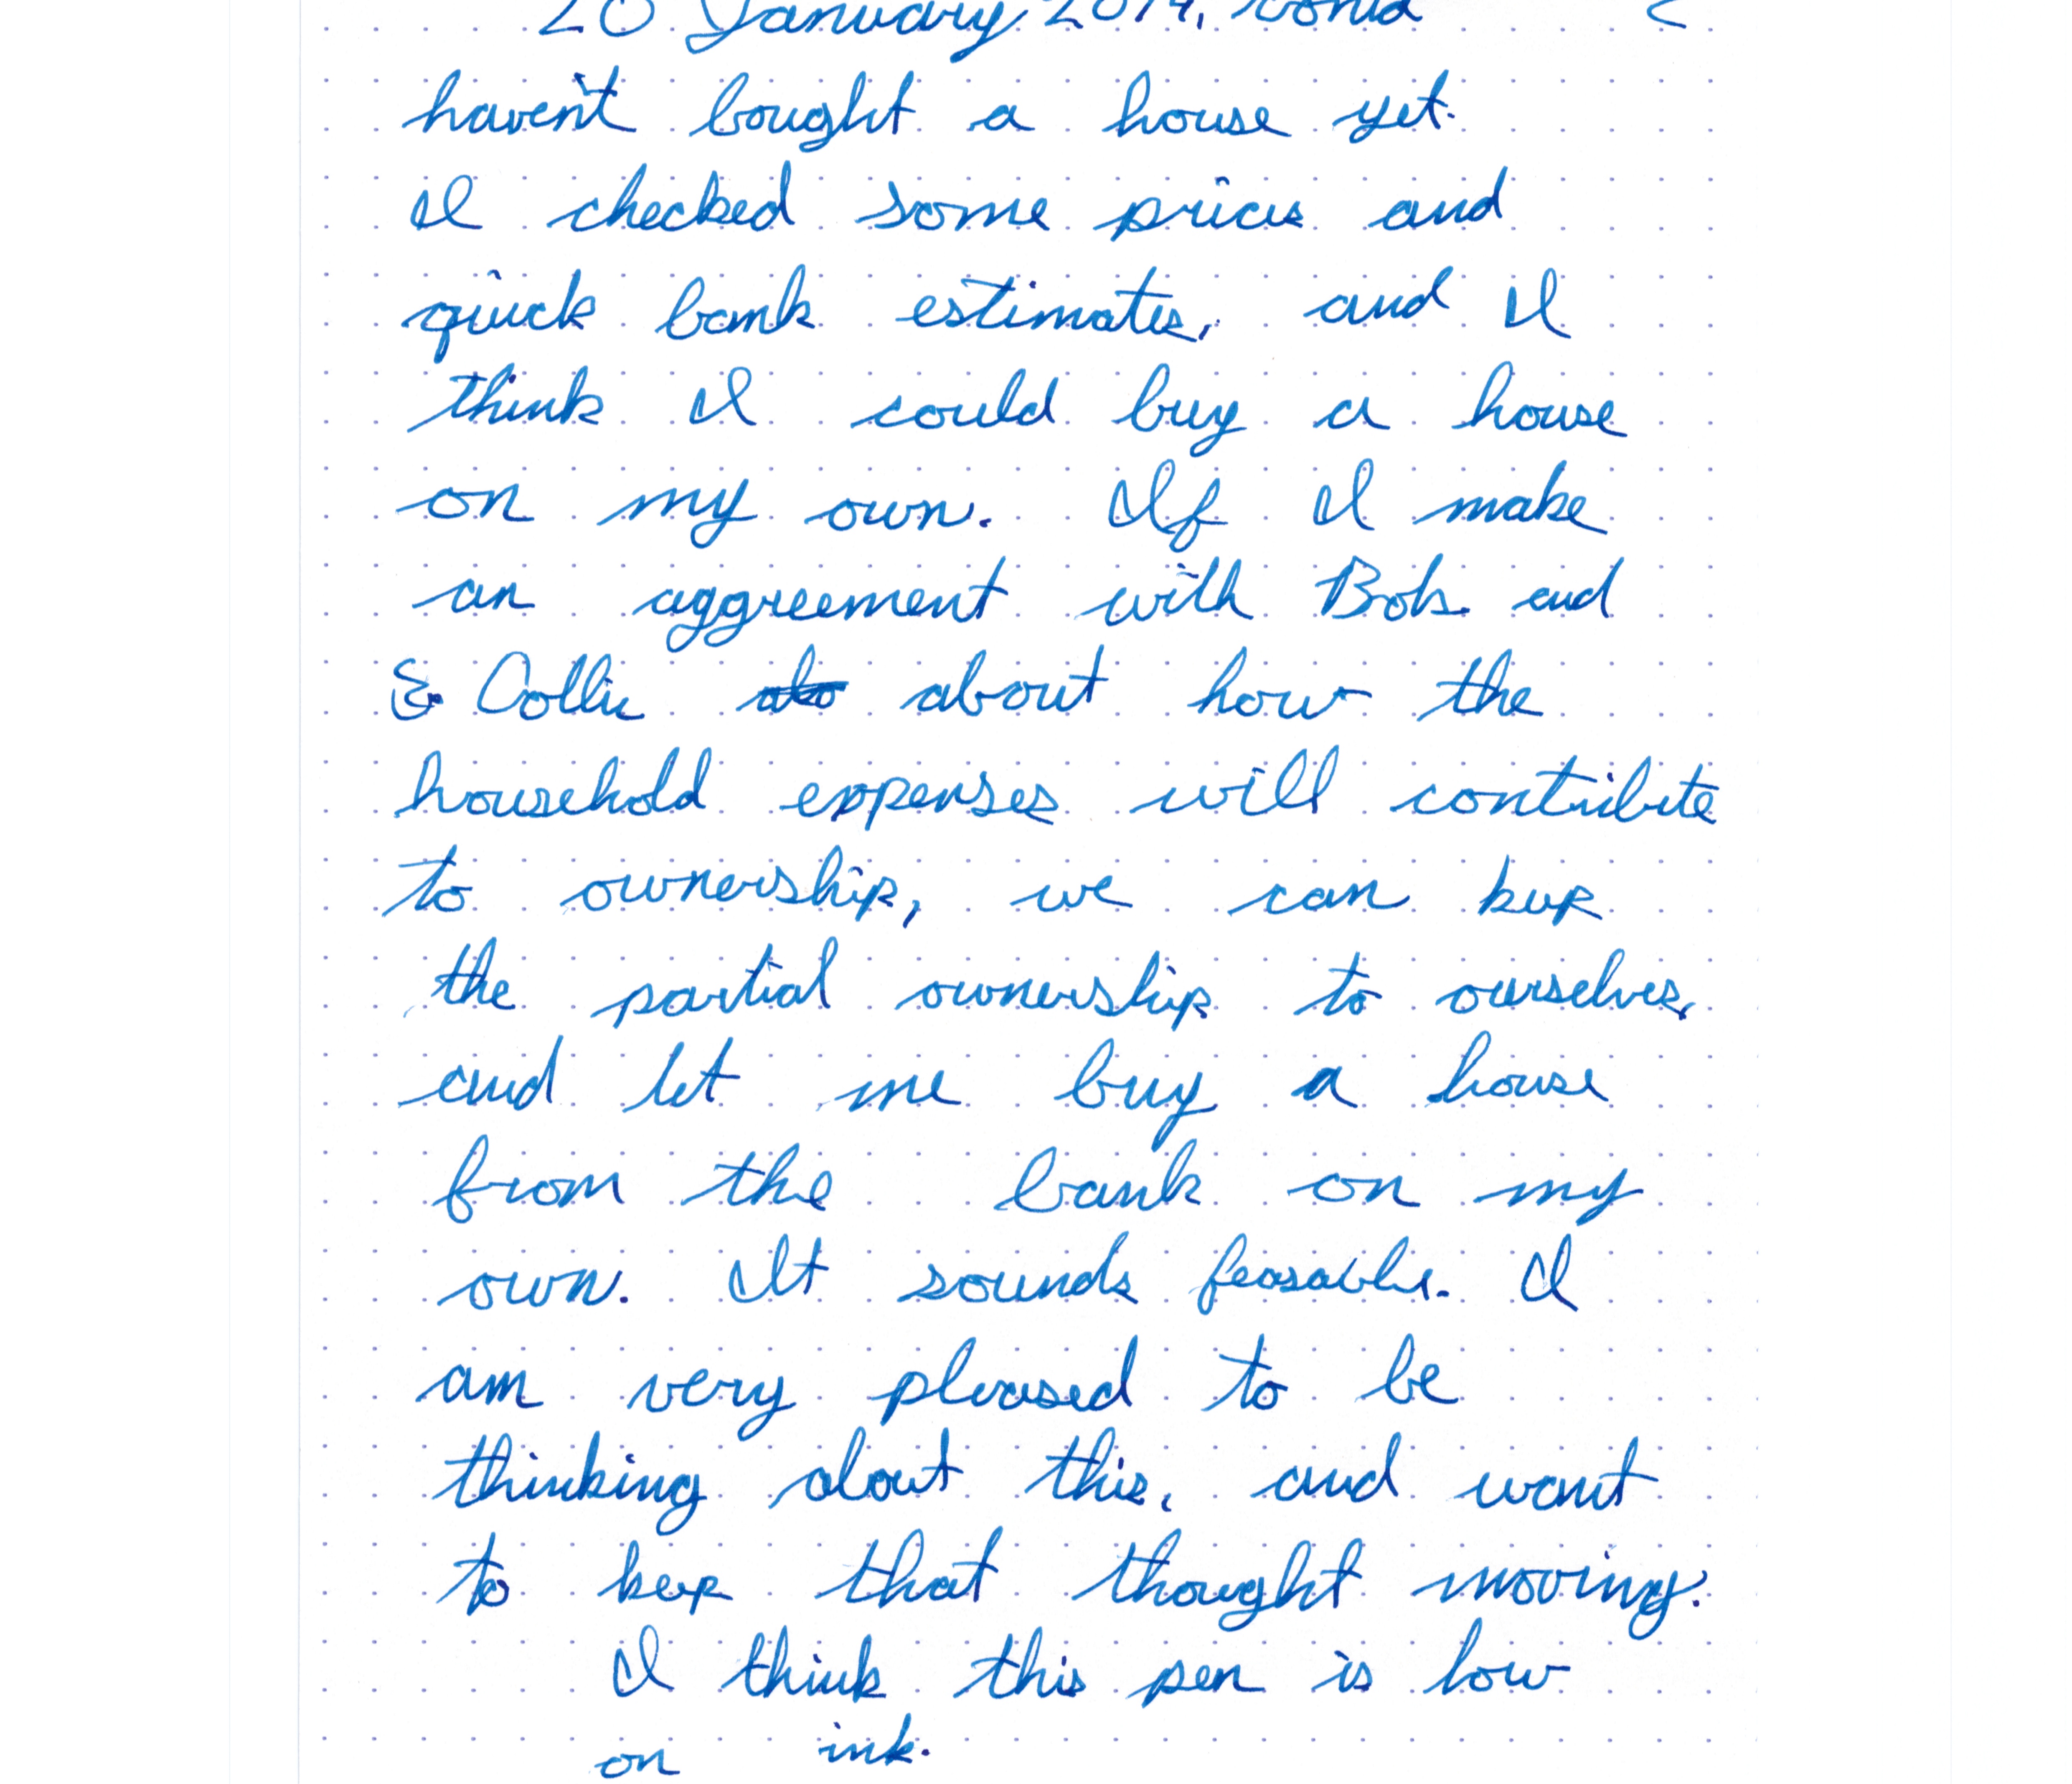 20 January 2014. World
haven't bought a house yet.
I checked some prices and
quick bank estimates, and I
think I could buy a house
on my own. If I make
an aggreement with Bob and
& Collie about how the
household expenses will contribute
to ownership, we can keep
the partial ownership to ourselves,
and let me buy a house
from the bank on my
own. It sounds feasable. I
am very pleased to be
thinking about this, and want
to keep that thought moving.
I think this pen is low
on ink.